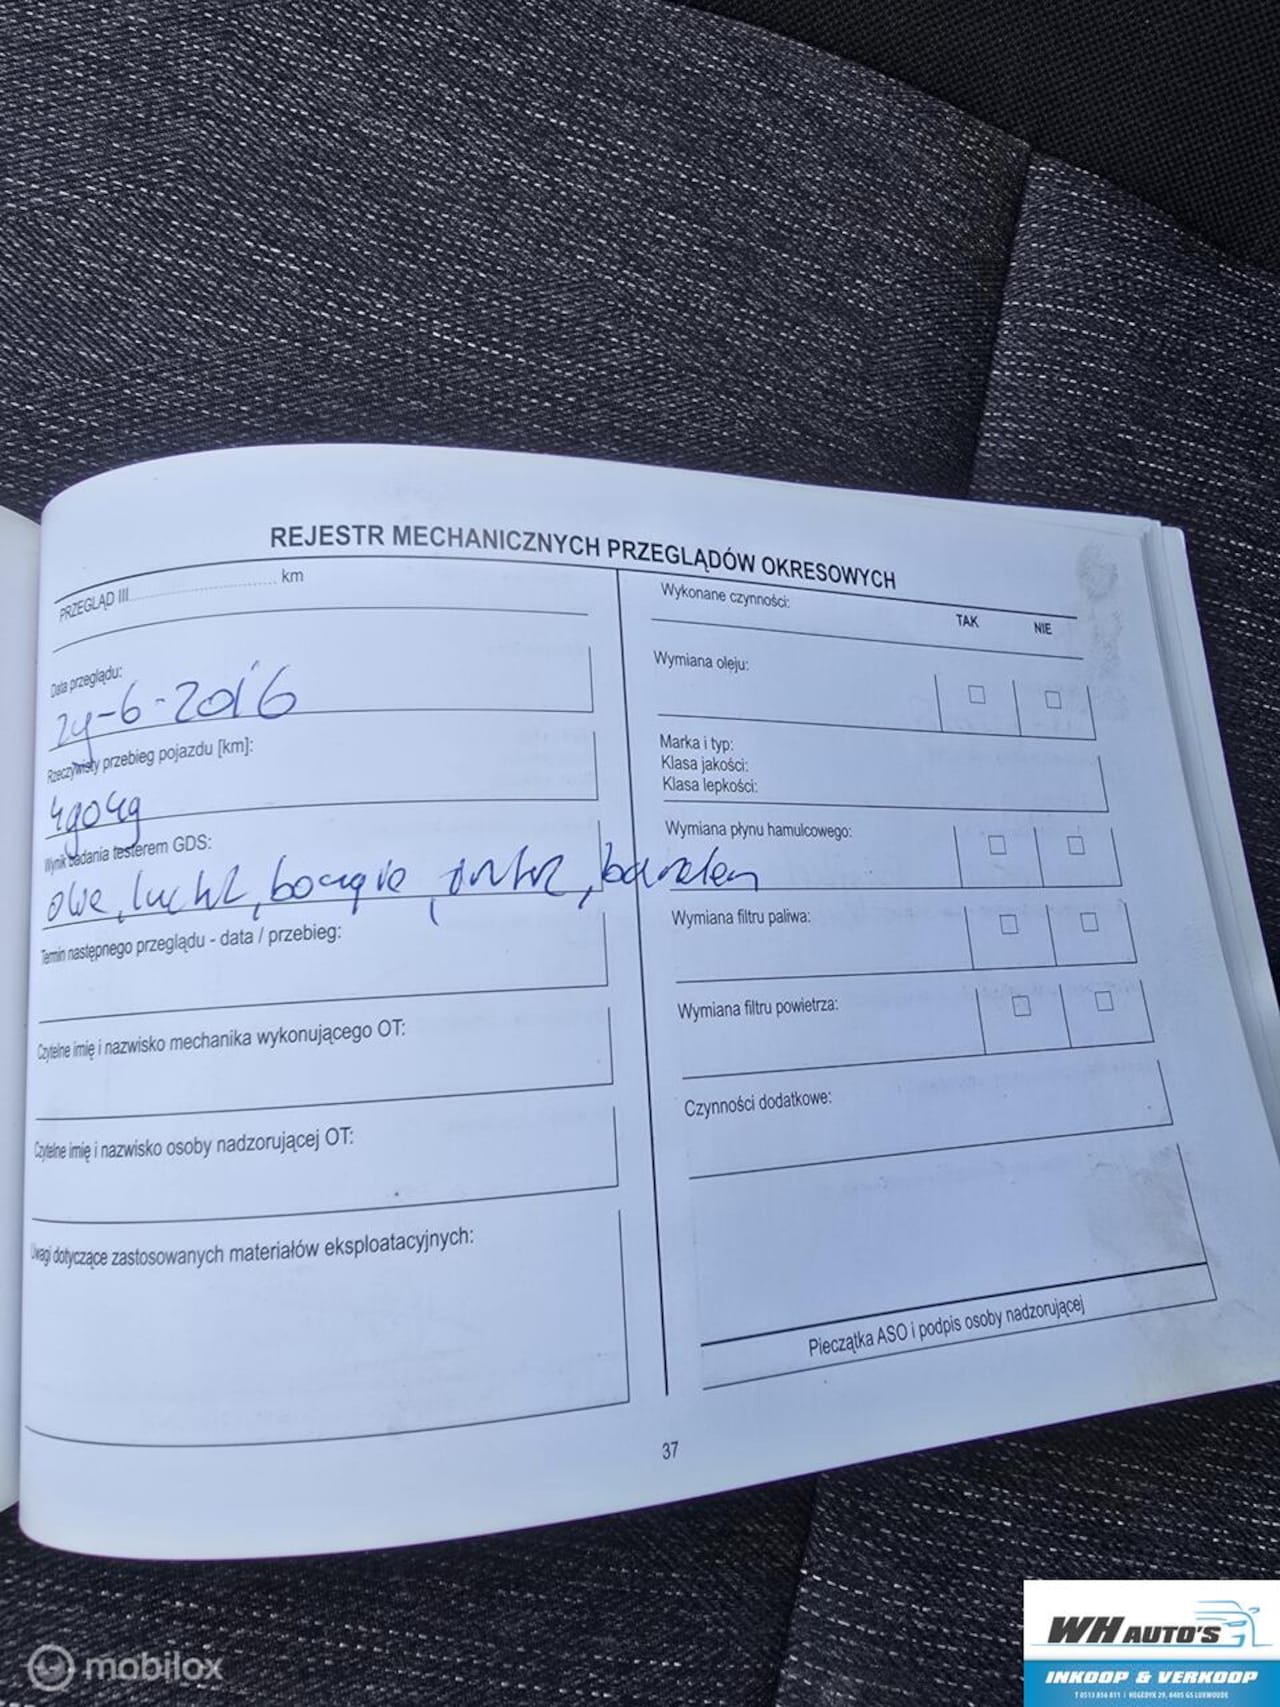 REJESTR MECHANICZNYCH PRZEGLĄDÓW OKRESOWYCH
PRZEGLĄD III........................ km
Data przeglądu:
29-6-2016
Rzeczywisty przebieg pojazdu [km]:
49049
Wynik badania testerem GDS:
olie, lucht, bougie, , banden
Termin następnego przeglądu - data / przebieg:
Czytelne imię i nazwisko mechanika wykonującego OT:
Czytelne imię i nazwisko osoby nadzorującej OT:
Uwagi dotyczące zastosowanych materiałów eksploatacyjnych:
Wykonane czynności:
TAK NIE
Wymiana oleju:
Marka i typ:
Klasa jakości:
Klasa lepkości:
Wymiana płynu hamulcowego:
Wymiana filtru paliwa:
Wymiana filtru powietrza:
Czynności dodatkowe:
Pieczątka ASO i podpis osoby nadzorującej
37
mobilox
WH AUTO'S
INKOOP & VERKOOP
T 0513 856 811 | HEGEDYK 29, 8405 GS LUXWOUDE